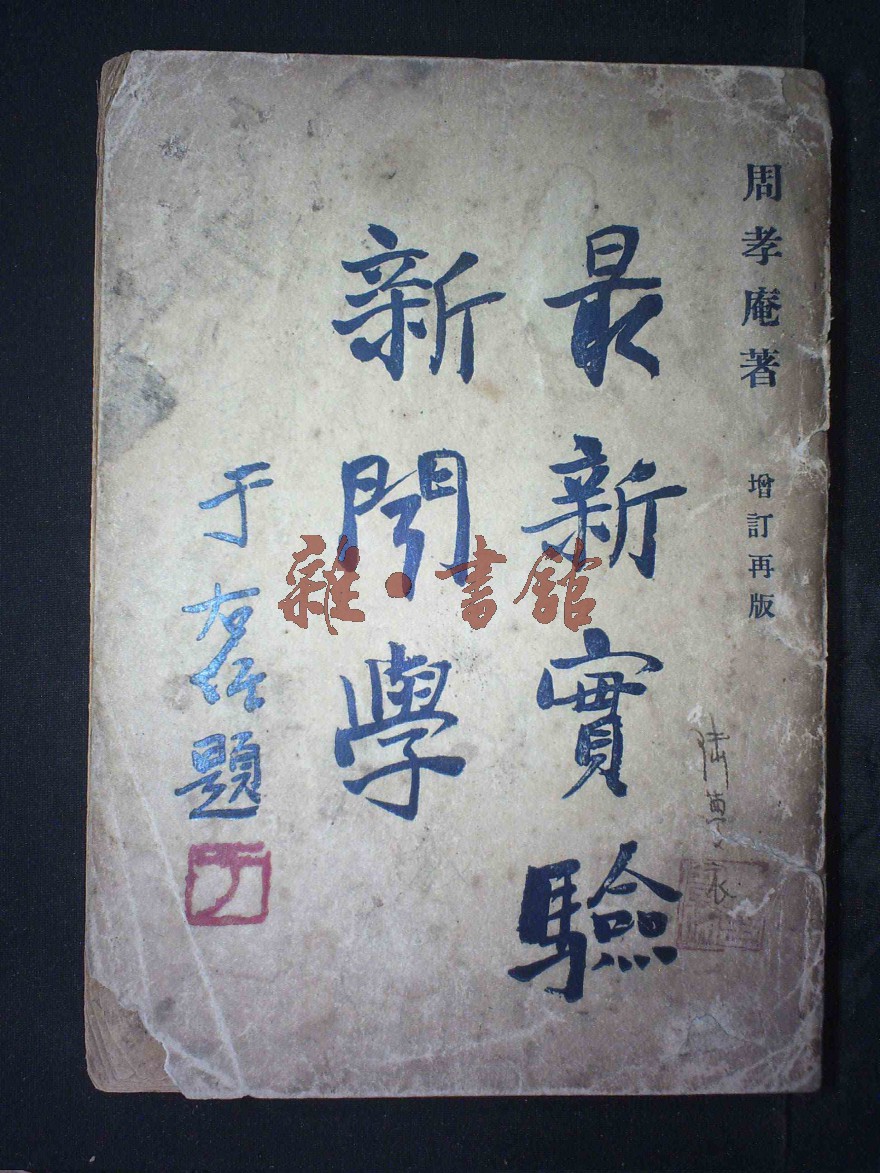 周孝庵著 增訂再版
最新實驗
新聞學
于右任題
雜·書館